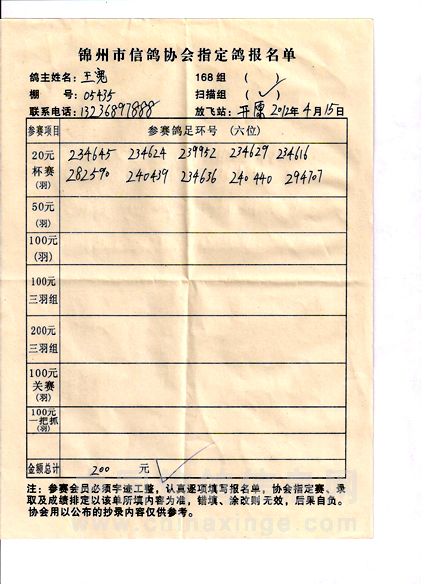 锦州市信鸽协会指定鸽报名单
鸽主姓名：王冕 168组（ ）
棚 号：05435 扫描组（✓）
联系电话：13236897888 放飞站：开原 2012年4月15日
参赛项目 参赛鸽足环号（六位）
20元 234645 234624 239952 234629 234616
杯赛 282590 240439 234636 240440 294707
(羽)
50元
(羽)
100元
(羽)
100元
三羽组
200元
三羽组
100元
关赛
(羽)
100元
一把抓
(羽)
金额总计 200 元
注：参赛会员必须字迹工整，认真逐项填写报名单，协会指定赛、录
取及成绩排定以该单所填内容为准，错填、涂改则无效，后果自负。
协会用以公布的抄录内容仅供参考。
www.chinaxinge.com